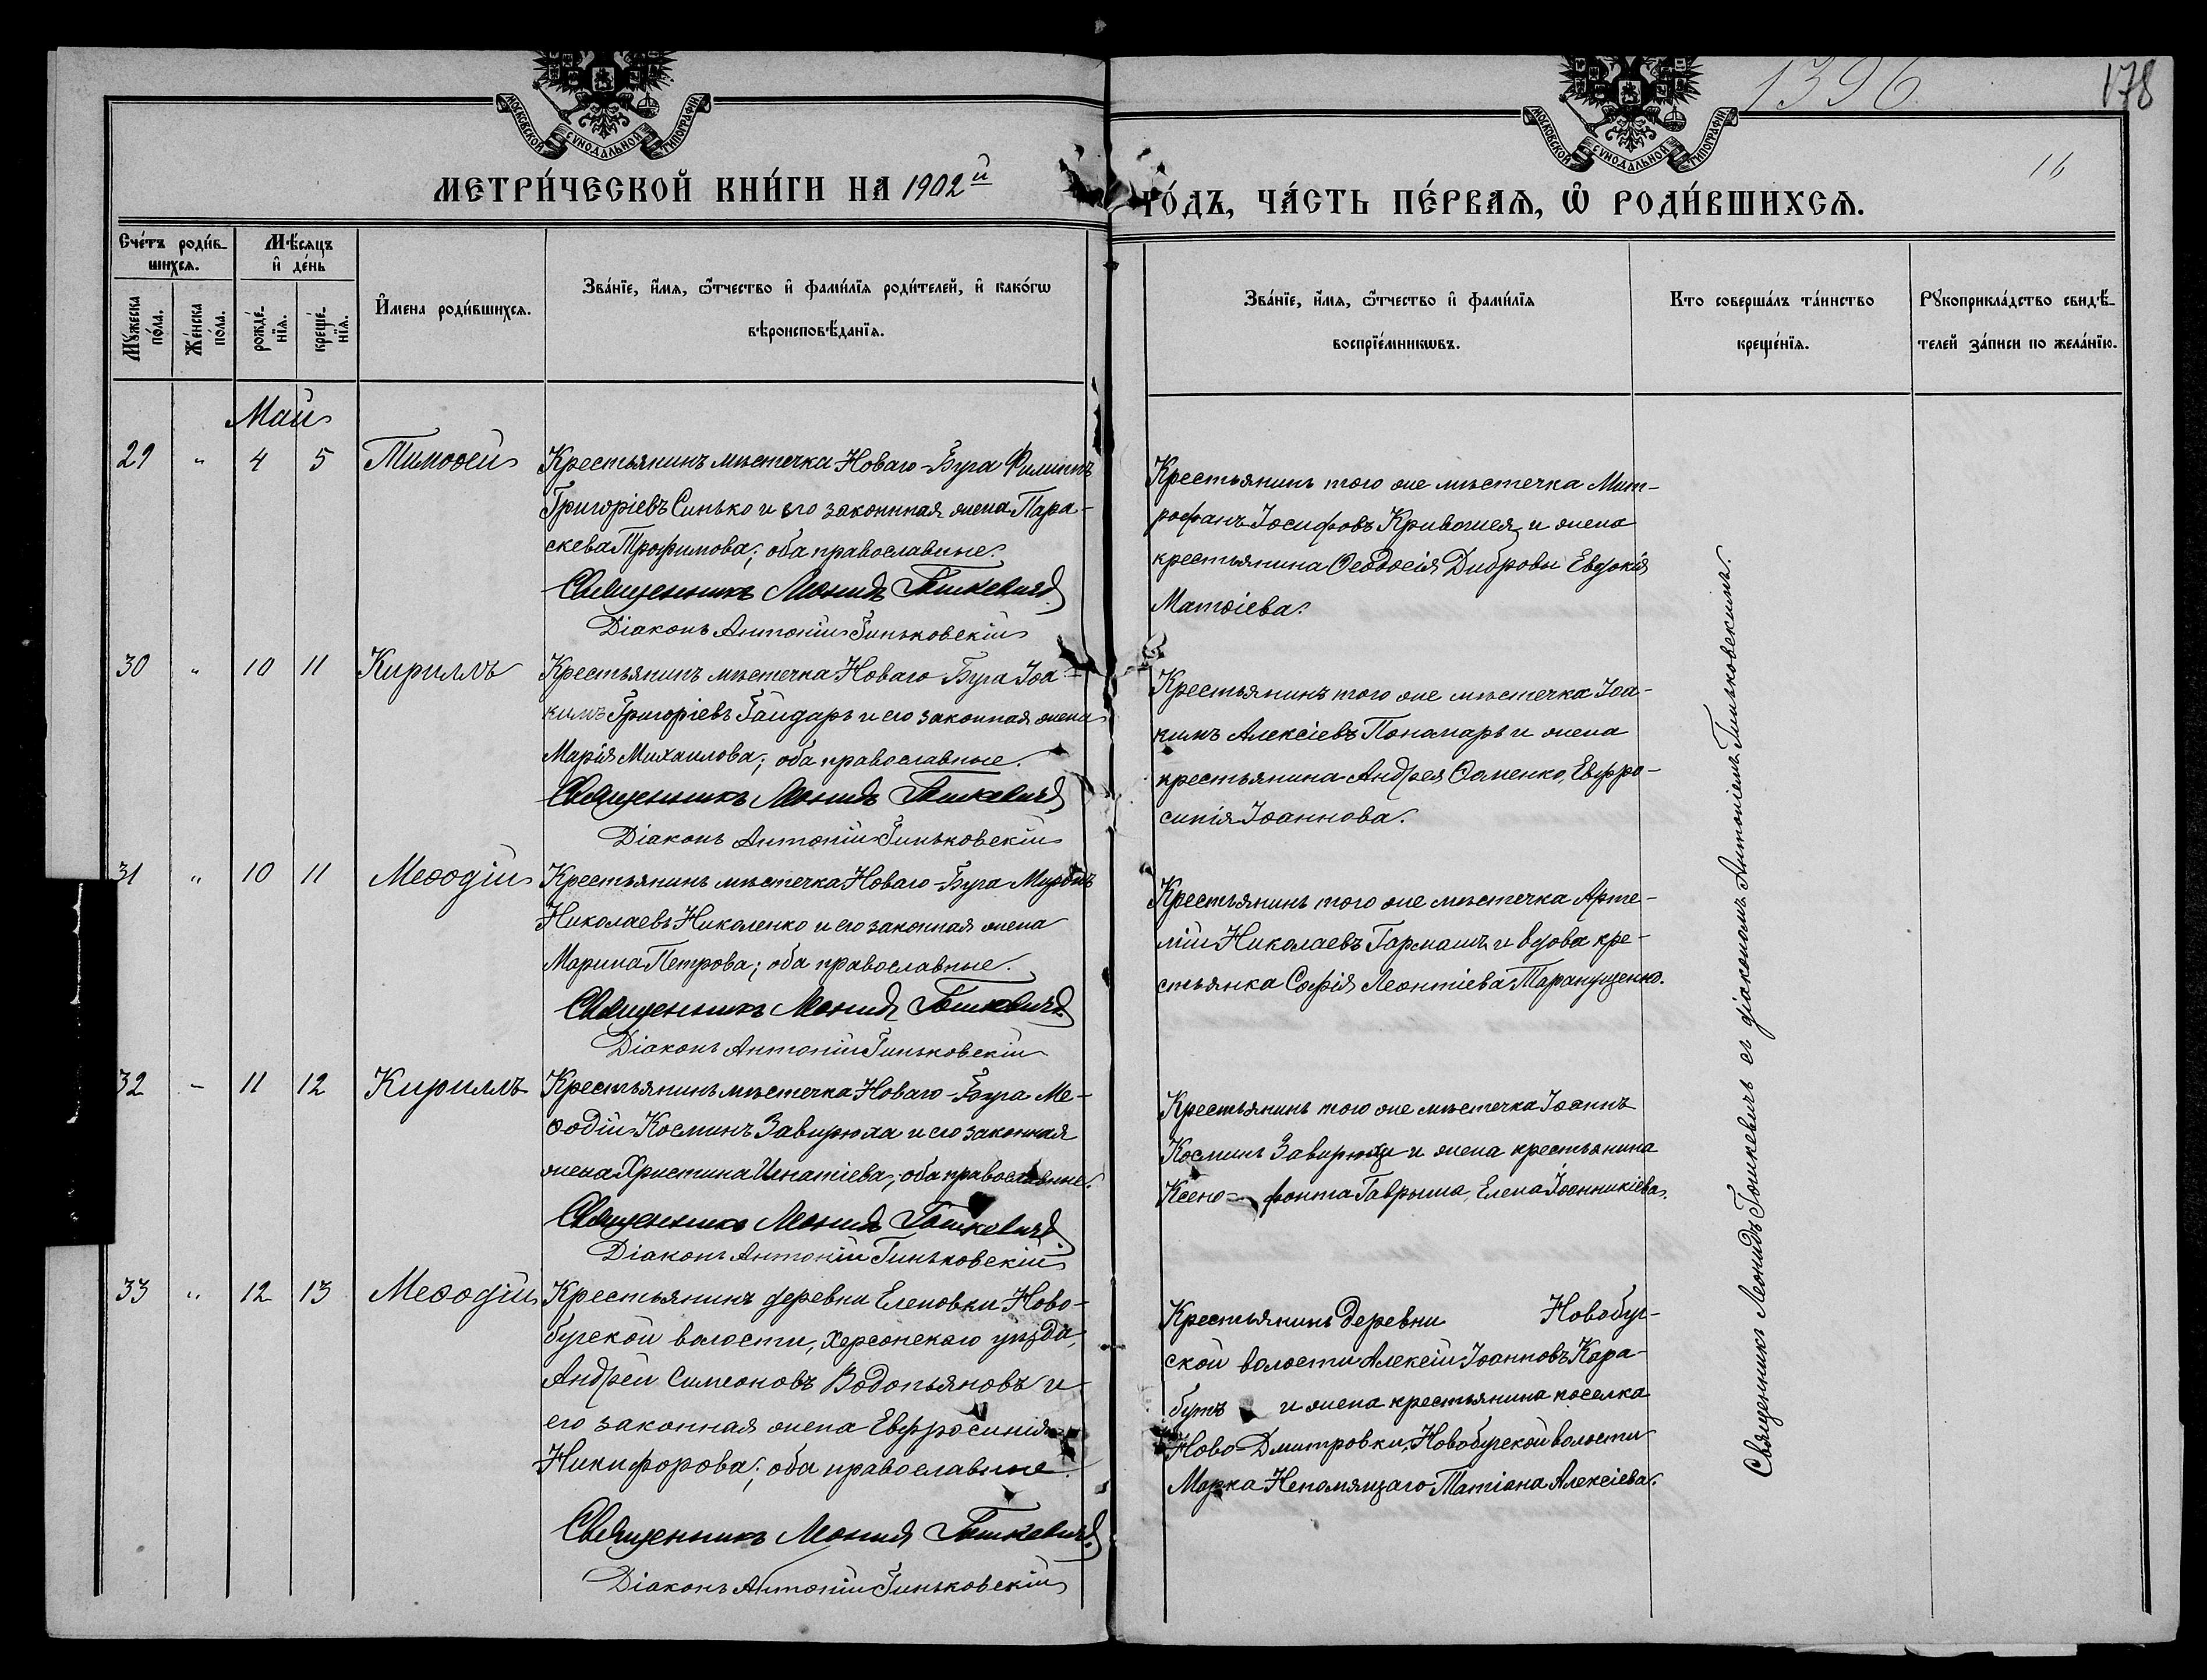 МОСКОВСКОЙ СѴНОДАЛЬНОЙ ТИПОГРАФІИ
МОСКОВСКОЙ СѴНОДАЛЬНОЙ ТИПОГРАФІИ
1396
178
16
МЕТРИ́ЧЕСКОЙ КНИ́ГИ НА 1902й
ГО́ДЪ, ЧА́СТЬ ПЕ́РВАѦ, Ѽ РОДИ́ВШИХСѦ.
Сче́тъ роди́в-
шихсѧ.
Мѣ́сѧцъ
и҆ де́нь
Мꙋ́жеска
по́ла.
Же́нска
по́ла.
рожде́-
нїѧ.
креще́-
нїѧ.
И҆мена роди́вшихсѧ.
Зва́нїе, и҆́мѧ, ѻ҆́тчество и҆ фами́лїѧ роди́телей, и҆ како́гѡ
вѣроисповѣ́данїѧ.
Зва́нїе, и҆́мѧ, ѻ҆́тчество и҆ фами́лїѧ
воспрїе́мникѡвъ.
Кто соверша́лъ та́инство
креще́нїѧ.
Рꙋкоприкла́дство свидѣ́-
телей за́писи по жела́нїю.
Май
29 " 4 5 Тимоѳей
Крестьянинъ мѣстечка Новаго-Буга Филиппъ
Григоріевъ Синько и его законная жена Пара-
скева Трофимова; оба православные.
Священникъ Леонидъ Гошкевичъ
Діаконъ Антоній Гиньковскій
Крестьянинъ того же мѣстечка Мит-
рофанъ Іосифовъ Кривошея и жена
крестьянина Ѳеодосія Дибровы Евдокія
Матѳіева.
30 " 10 11 Кириллъ
Крестьянинъ мѣстечка Новаго-Буга Іоа-
кимъ Григоріевъ Гайдаръ и его законная жена
Марія Михаилова; оба православные.
Священникъ Леонидъ Гошкевичъ
Діаконъ Антоній Гиньковскій
Крестьянинъ того же мѣстечка Іоа-
кимъ Алексіевъ Пономарь и жена
крестьянина Андрея Евфро-
синія Іоаннова.
31 " 10 11 Меѳодій
Крестьянинъ мѣстечка Новаго-Буга
Николаевъ Николенко и его законная жена
Марина Петрова; оба православные.
Священникъ Леонидъ Гошкевичъ
Діаконъ Антоній Гиньковскій
Крестьянинъ того же мѣстечка Арте-
мій Николаевъ Гармашъ и вдова кре-
стьянка Софія Леонтіева Таранущенко.
32 - 11 12 Кириллъ
Крестьянинъ мѣстечка Новаго-Буга Ме-
ѳодій Косминъ Завирюха и его законная
жена Христина Игнатіева; оба православные.
Священникъ Леонидъ Гошкевичъ
Діаконъ Антоній Гиньковскій
Крестьянинъ того же мѣстечка Іоаннъ
Косминъ Завирюха и жена крестьянина
Ксено- фонта Гаврыша, Елена Іоанникіева.
33 " 12 13 Меѳодій
Крестьянинъ деревни Еленовки Ново-
бугской волости, Херсонскаго уѣзда,
Андрей Симеоновъ Водопьяновъ и
его законная жена Евфросинія
Никифорова; оба православные
Священникъ Леонидъ Гошкевичъ
Діаконъ Антоній Гиньковскій
Крестьянинъ деревни Новобуг-
ской волости Алексій Іоанновъ Кара-
бутъ и жена крестьянина поселка
Ново Дмитровки, Новобугской волости
Марка Непомящаго Татіана Алексіева.
Священникъ Леонидъ Гошкевичъ съ діакономъ Антоніемъ Гиньковскимъ.